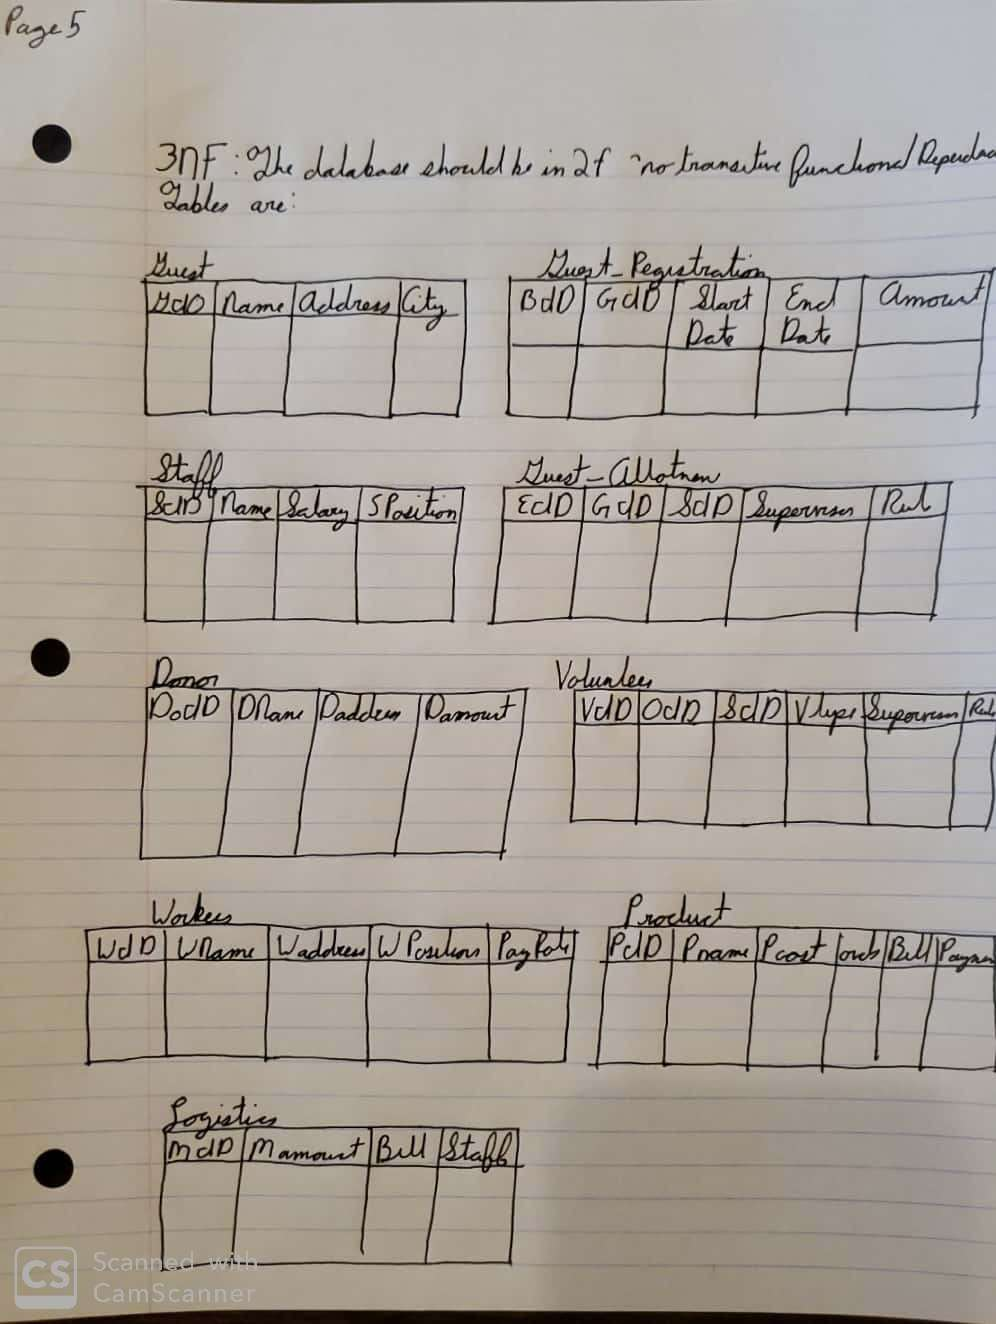 Page 5
3NF: The database should be in 2f "no transitive functional
Tables are:
Guest
GdD Name Address City
Guest_Registration
BdD GdD Start Date End Date Amount
Staff
SdD Name Salary SPosition
Guest_Allotmen
EdD GdD SdD Supervisor
Donor
DodD DName Daddress Damount
Volunteer
VdD OdD SdD Vtype Supervisor
Workers
WdD WName Waddress WPosition PayRate
Product
PdD Pname Pcost Bill
Logistics
MdD Mamount Bill Staff
CS Scanned with
CamScanner